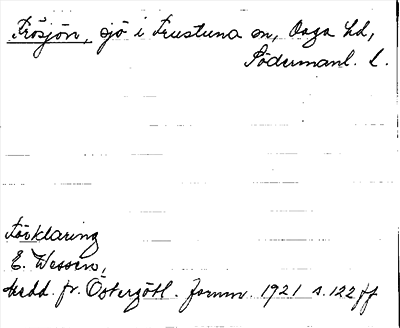 Frösjön, sjö i Frustuna sn, Daga hd,
Södermanl. l.
Förklaring
E. Wessén,
Medd. fr. Östergötl. fornm. 1921 s. 122 ff